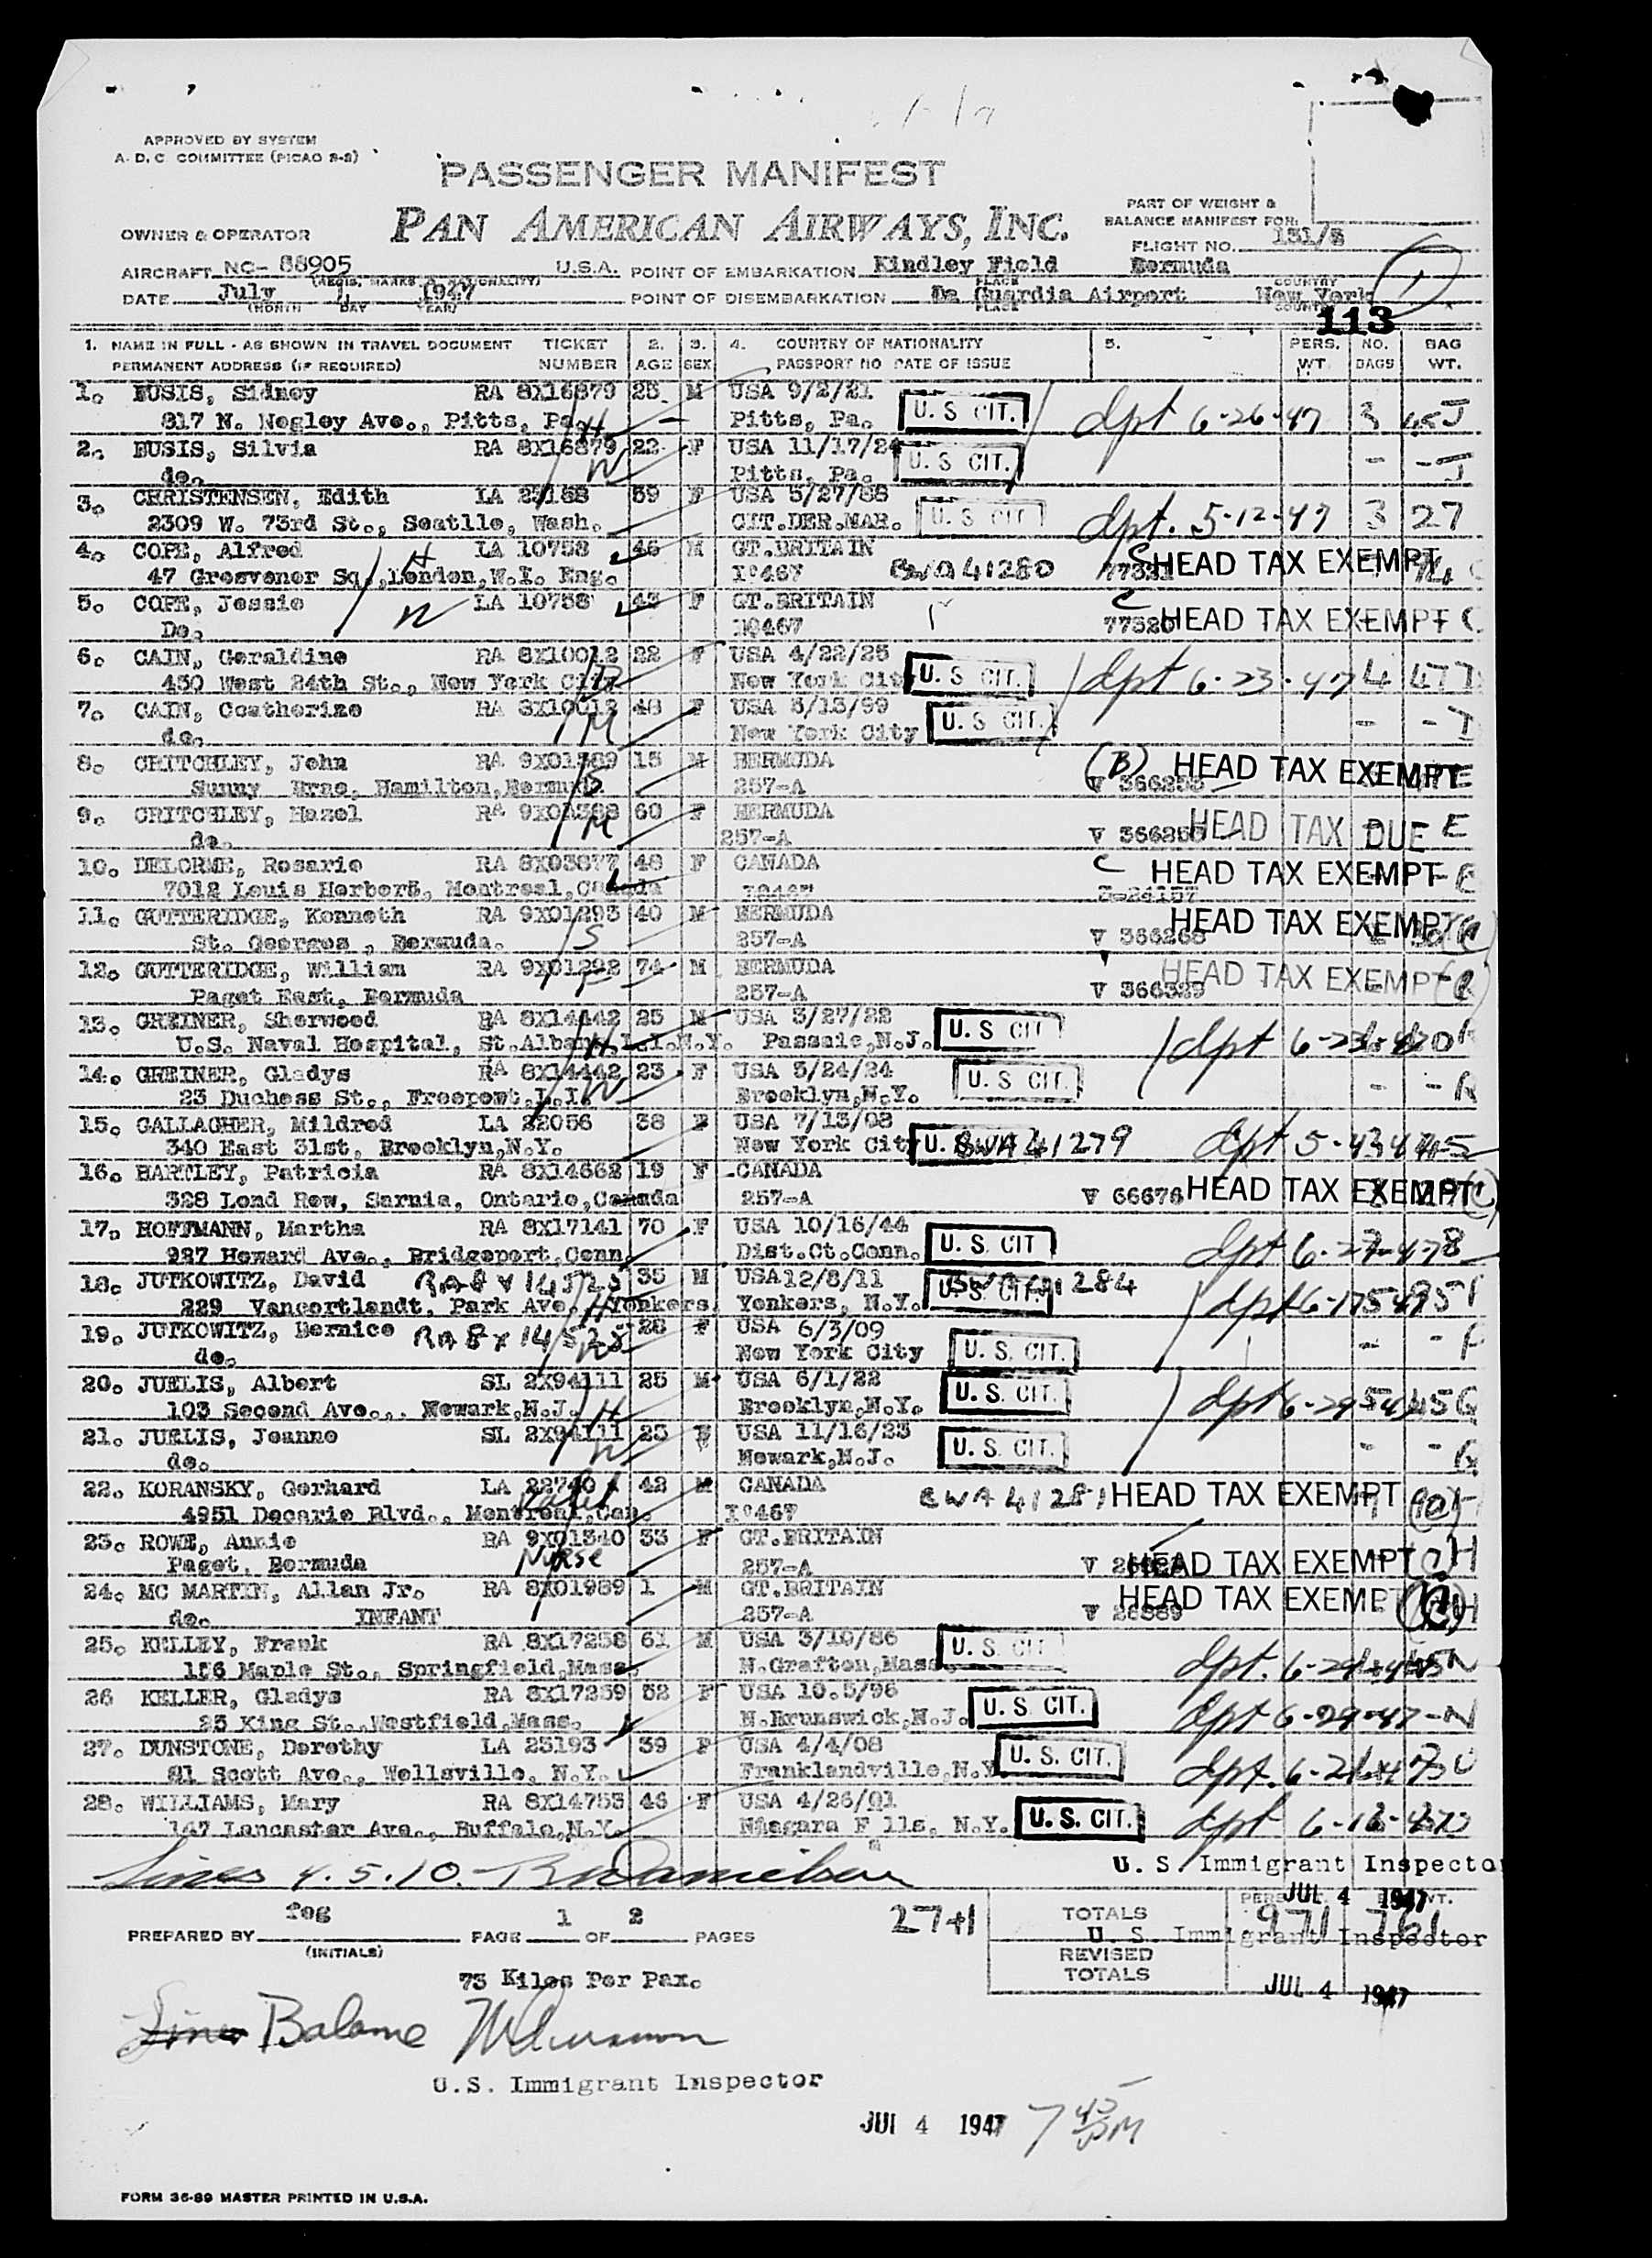 APPROVED BY SYSTEM
A. D. C COMMITTEE (PICAO S-S)
PASSENGER MANIFEST
PAN AMERICAN AIRWAYS, INC.
PART OF WEIGHT &
BALANCE MANIFEST FOR:
OWNER & OPERATOR
FLIGHT NO. 131/3
AIRCRAFT NC- 88905 U.S.A. POINT OF EMBARKATION Kindley Field Bermuda
PLACE COUNTRY
DATE July 1947 POINT OF DISEMBARKATION Guardia Airport New York
(MONTH DAY YEAR) PLACE
1
113
1. NAME IN FULL - AS SHOWN IN TRAVEL DOCUMENT TICKET 2. 3. 4. COUNTRY OF NATIONALITY 5. PERS. NO. BAG
PERMANENT ADDRESS (IF REQUIRED) NUMBER AGE SEX PASSPORT NO DATE OF ISSUE WT. BAGS WT.
1. EUSIS, Sidney RA 8X16879 25 M USA 9/2/21
817 N. Negley Ave., Pitts, Pa. H Pitts, Pa. U. S CIT. dpt 6-26-47 3
2. EUSIS, Silvia RA 8X16879 22 F USA 11/17/24
do. W Pitts, Pa. U. S CIT. - -
3. CHRISTENSEN, Edith LA 23188 59 F USA 5/27/88
2309 W. 73rd St., Seatlle, Wash. CIT.DER.MAR. U. S CIT dpt. 5-12-47 3 27
4. COPE, Alfred H LA 10758 46 M GT.BRITAIN
47 Grosvenor Sq., London, W.I. Eng. I°467 BWA 41280 HEAD TAX EXEMPT
5. COPE, Jessie W LA 10758 43 F GT.BRITAIN
Do. I°467 77320 HEAD TAX EXEMPT C
6. CAIN, Geraldine RA 8X10012 22 F USA 4/22/25
450 West 24th St., New York City New York City U. S CIT. dpt 6-23-47 4 47
7. CAIN, Coatherine RA 8X10012 48 F USA 5/13/99
do. M New York City U. S CIT. - -
8. CRITCHLEY, John RA 9X01389 15 M BERMUDA
Sunny Brae, Hamilton, Bermuda S 257-A (B) HEAD TAX EXEMPT
9. CRITCHLEY, Hazel RA 9X01388 60 F BERMUDA
do. M 257-A HEAD TAX DUE E
10. DELORME, Rosario RA 8X03877 48 F CANADA
7012 Louis Herbert, Montreal, Canada C HEAD TAX EXEMPT
11. GUTTERIDGE, Kenneth RA 9X01293 40 M BERMUDA
St. Georges, Bermuda. S 257-A V 366268 HEAD TAX EXEMPT
12. GUTTERIDGE, William RA 9X01292 74 M BERMUDA
Paget East, Bermuda F 257-A V 366329 HEAD TAX EXEMPT
13. GREINER, Sherwood RA 8X14442 25 M USA 3/27/22
U.S. Naval Hospital, St.Albans, L.I.N.Y. H Passaic, N.J. U. S CIT dpt 6-23-47
14. GREINER, Gladys RA 8X14442 23 F USA 3/24/24
23 Duchess St., Freeport, L.I. W Brooklyn, N.Y. U. S CIT. - -
15. GALLAGHER, Mildred LA 22056 38 F USA 7/13/08
340 East 31st, Brooklyn, N.Y. New York City U. BWA 41279 dpt
16. HARTLEY, Patricia RA 8X14662 19 F CANADA
328 Lond Row, Sarnia, Ontario, Canada 257-A V 66676 HEAD TAX EXEMPT
17. HOFFMANN, Martha RA 8X17141 70 F USA 10/16/44
987 Howard Ave., Bridgeport, Conn. Dist.Ct.Conn. U. S. CIT dpt 6-27-47
18. JUTKOWITZ, David 35 M USA 12/8/11
229 Vancortlandt, Park Ave., Yonkers, H Yonkers, N.Y. U. S. CIT dpt 6-17
19. JUTKOWITZ, Bernice RA 8X 14528 28 F USA 6/3/09
do. W New York City U. S. CIT. - -
20. JUELIS, Albert SL 2X94111 25 M USA 6/1/22
103 Second Ave., Newark, N.J. H Brooklyn, N.Y. U. S. CIT. dpt 6-29
21. JUELIS, Jeanne SL 2X94111 23 F USA 11/16/23
do. W Newark, N.J. U. S. CIT. - -
22. KORANSKY, Gerhard LA 22740 42 M CANADA
4951 Decarie Blvd., Montreal, Can. I°467 BWA 41281 HEAD TAX EXEMPT
23. ROWE, Annie RA 9X01340 33 F GT.BRITAIN
Paget, Bermuda Nurse 257-A HEAD TAX EXEMPT H
24. MC MARTIN, Allan Jr. RA 8X01989 1 M GT.BRITAIN
do. INFANT 257-A HEAD TAX EXEMP
25. KELLEY, Frank RA 8X17258 61 M USA 3/10/86
156 Maple St., Springfield, Mass. N.Grafton, Mass. U. S CIT dpt.
26 KELLER, Gladys RA 8X17259 52 F USA 10.5/96
23 King St., Westfield, Mass. N.Brunswick, N.J. U. S. CIT. dpt 6-29-47
27. DUNSTONE, Dorothy LA 23193 39 F USA 4/4/08
81 Scott Ave., Wellsville, N.Y. Franklandville, N.Y U. S. CIT. dpt.
28. WILLIAMS, Mary RA 8X14753 46 F USA 4/26/01
147 Lancaster Ave., Buffalo, N.Y. Niagara F lls, N.Y. U. S. CIT. dpt
Lines 4.5.10.
U. S. Immigrant Inspector
JUL 4 1947
PREPARED BY feg PAGE 1 OF 2 PAGES
(INITIALS)
27+1
TOTALS 971 761
U. S. Immigrant Inspector
REVISED
TOTALS
JUL 4 1947
73 Kilos Per Pax.
Balame
U.S. Immigrant Inspector
JUL 4 1947 7 45 PM
FORM 36-89 MASTER PRINTED IN U.S.A.